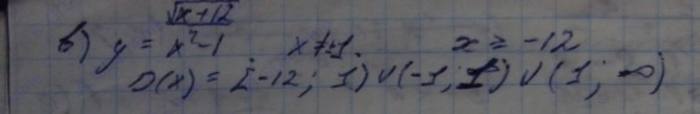 в) y = √x+12 / x²-1    x ≠ ±1.    x ≥ -12
D(x) = [-12; 1) ∪ (-1; 1) ∪ (1; ∞)